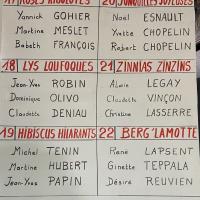 17 ROSES RIGOLOTES
Yannick GOHIER
Martine MESLET
Babeth FRANÇOIS
18 LYS LOUFOQUES
Jean-Yves ROBIN
Dominique OLIVO
Claudette DENIAU
19 HIBISCUS HILARANTS
Michel TENIN
Martine HUBERT
Jean-Yves PAPIN
20 JONQUILLES JOYEUSES
Noël ESNAULT
Yvette CHOPELIN
Robert CHOPELIN
21 ZINNIAS ZINZINS
Alain LEGAY
Claudette VINÇON
Christine LASSERRE
22 BERG'LAMOTTE
René LAPSENT
Ginette TEPPALA
Désiré REUVIEN